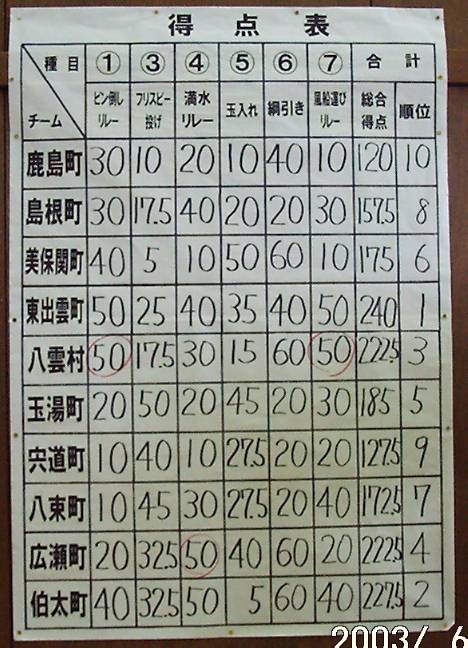 得点表
種目 ① ③ ④ ⑤ ⑥ ⑦ 合計
チーム ピン倒しリレー フリスビー投げ 満水リレー 玉入れ 綱引き 風船運びリレー 総合得点 順位
鹿島町 30 10 20 10 40 10 120 10
島根町 30 17.5 40 20 20 30 157.5 8
美保関町 40 5 10 50 60 10 175 6
東出雲町 50 25 40 35 40 50 240 1
八雲村 50 17.5 30 15 60 50 222.5 3
玉湯町 20 50 20 45 20 30 185 5
宍道町 10 40 10 27.5 20 20 127.5 9
八束町 10 45 30 27.5 20 40 172.5 7
広瀬町 20 32.5 50 40 60 20 222.5 4
伯太町 40 32.5 50 5 60 40 227.5 2
2003/ 6